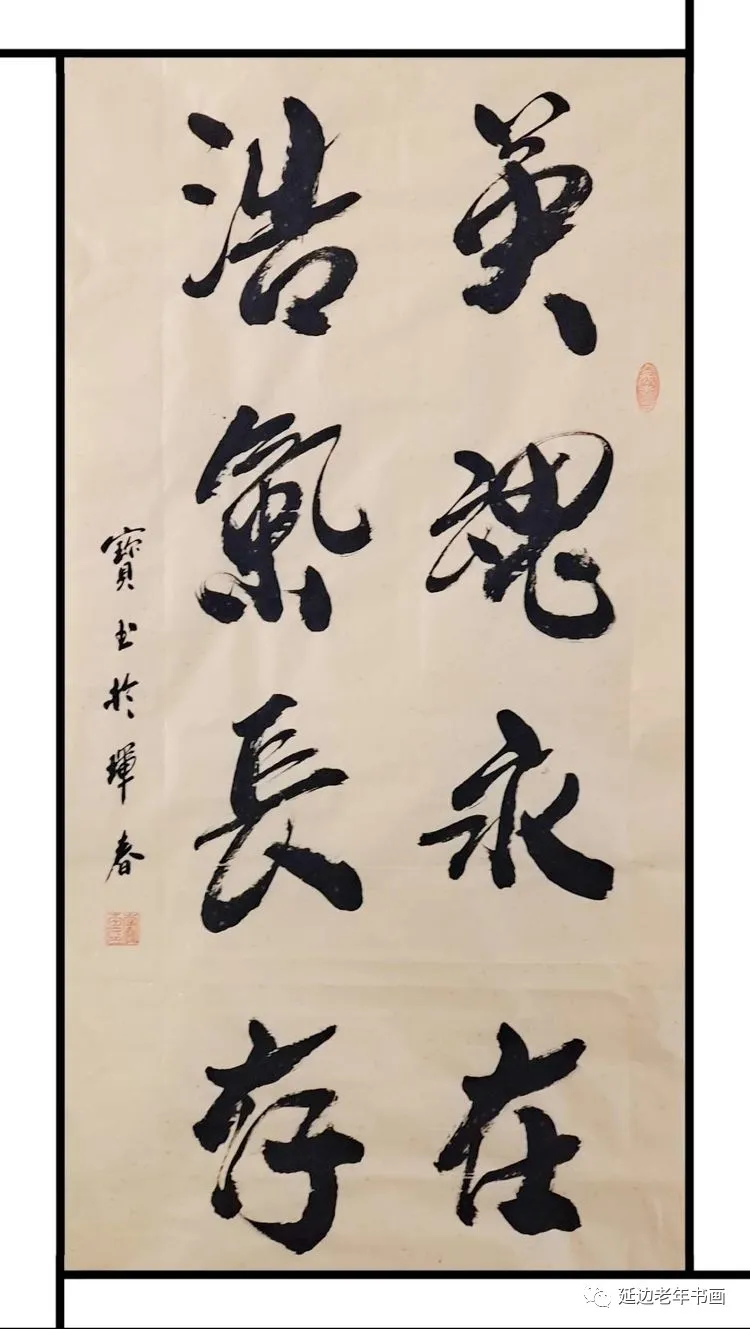 英魂永在
浩氣長存
寶玉於琿春
延边老年书画